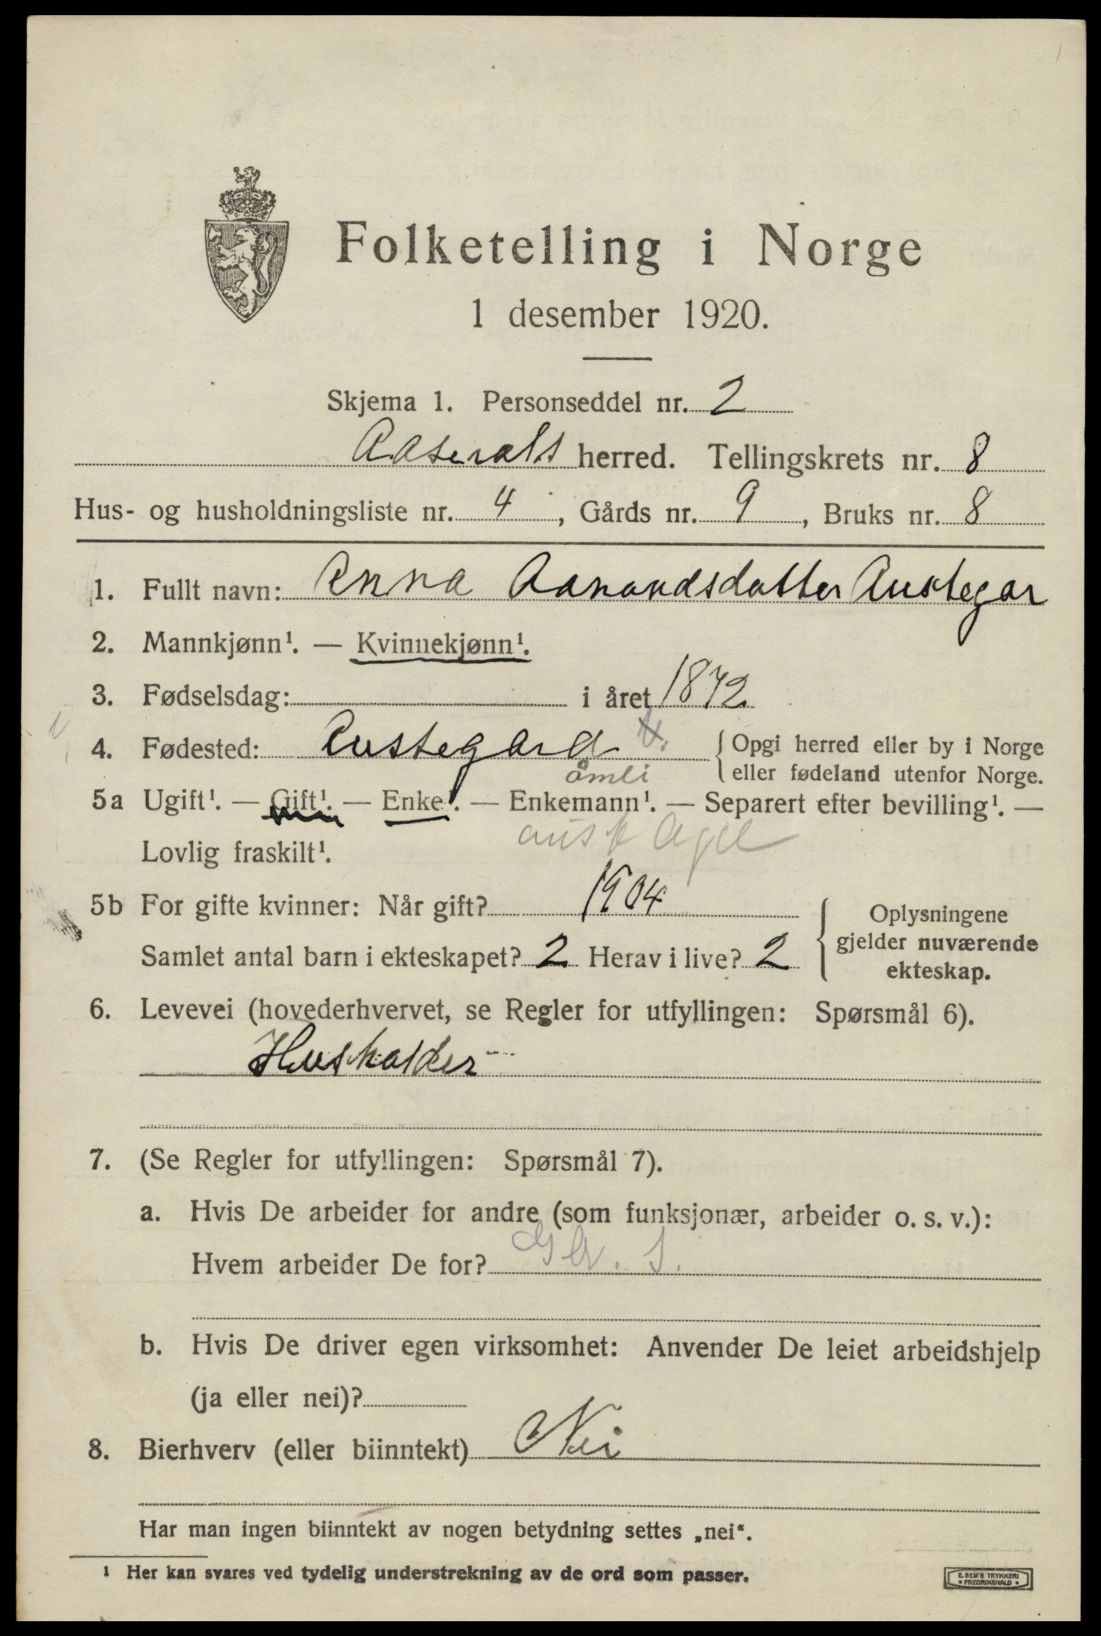 Folketelling i Norge
1 desember 1920.
Skjema 1. Personseddel nr. 2
Aaseralts herred. Tellingskrets nr. 8
Hus- og husholdningsliste nr. 4, Gårds nr. 9, Bruks nr. 8
1. Fullt navn: Anna Aanandsdatter Austegar
2. Mannkjønn¹. — Kvinnekjønn¹.
3. Fødselsdag: i året 1872
4. Fødested: Austegard { Opgi herred eller by i Norge
åmli eller fødeland utenfor Norge.
5a Ugift¹. — Gift¹. — Enke¹. — Enkemann¹. — Separert efter bevilling¹. —
aust Agd
Lovlig fraskilt¹.
5b For gifte kvinner: Når gift? 1904
Samlet antal barn i ekteskapet? 2 Herav i live? 2
Oplysningene
gjelder nuværende
ekteskap.
6. Levevei (hovederhvervet, se Regler for utfyllingen: Spørsmål 6).
Husholder
7. (Se Regler for utfyllingen: Spørsmål 7).
a. Hvis De arbeider for andre (som funksjonær, arbeider o. s. v.):
Hvem arbeider De for?
b. Hvis De driver egen virksomhet: Anvender De leiet arbeidshjelp
(ja eller nei)?
8. Bierhverv (eller biinntekt) Nei
Har man ingen biinntekt av nogen betydning settes „nei“.
¹ Her kan svares ved tydelig understrekning av de ord som passer.
E. SEM'S TRYKKERI
FREDRIKSHALD